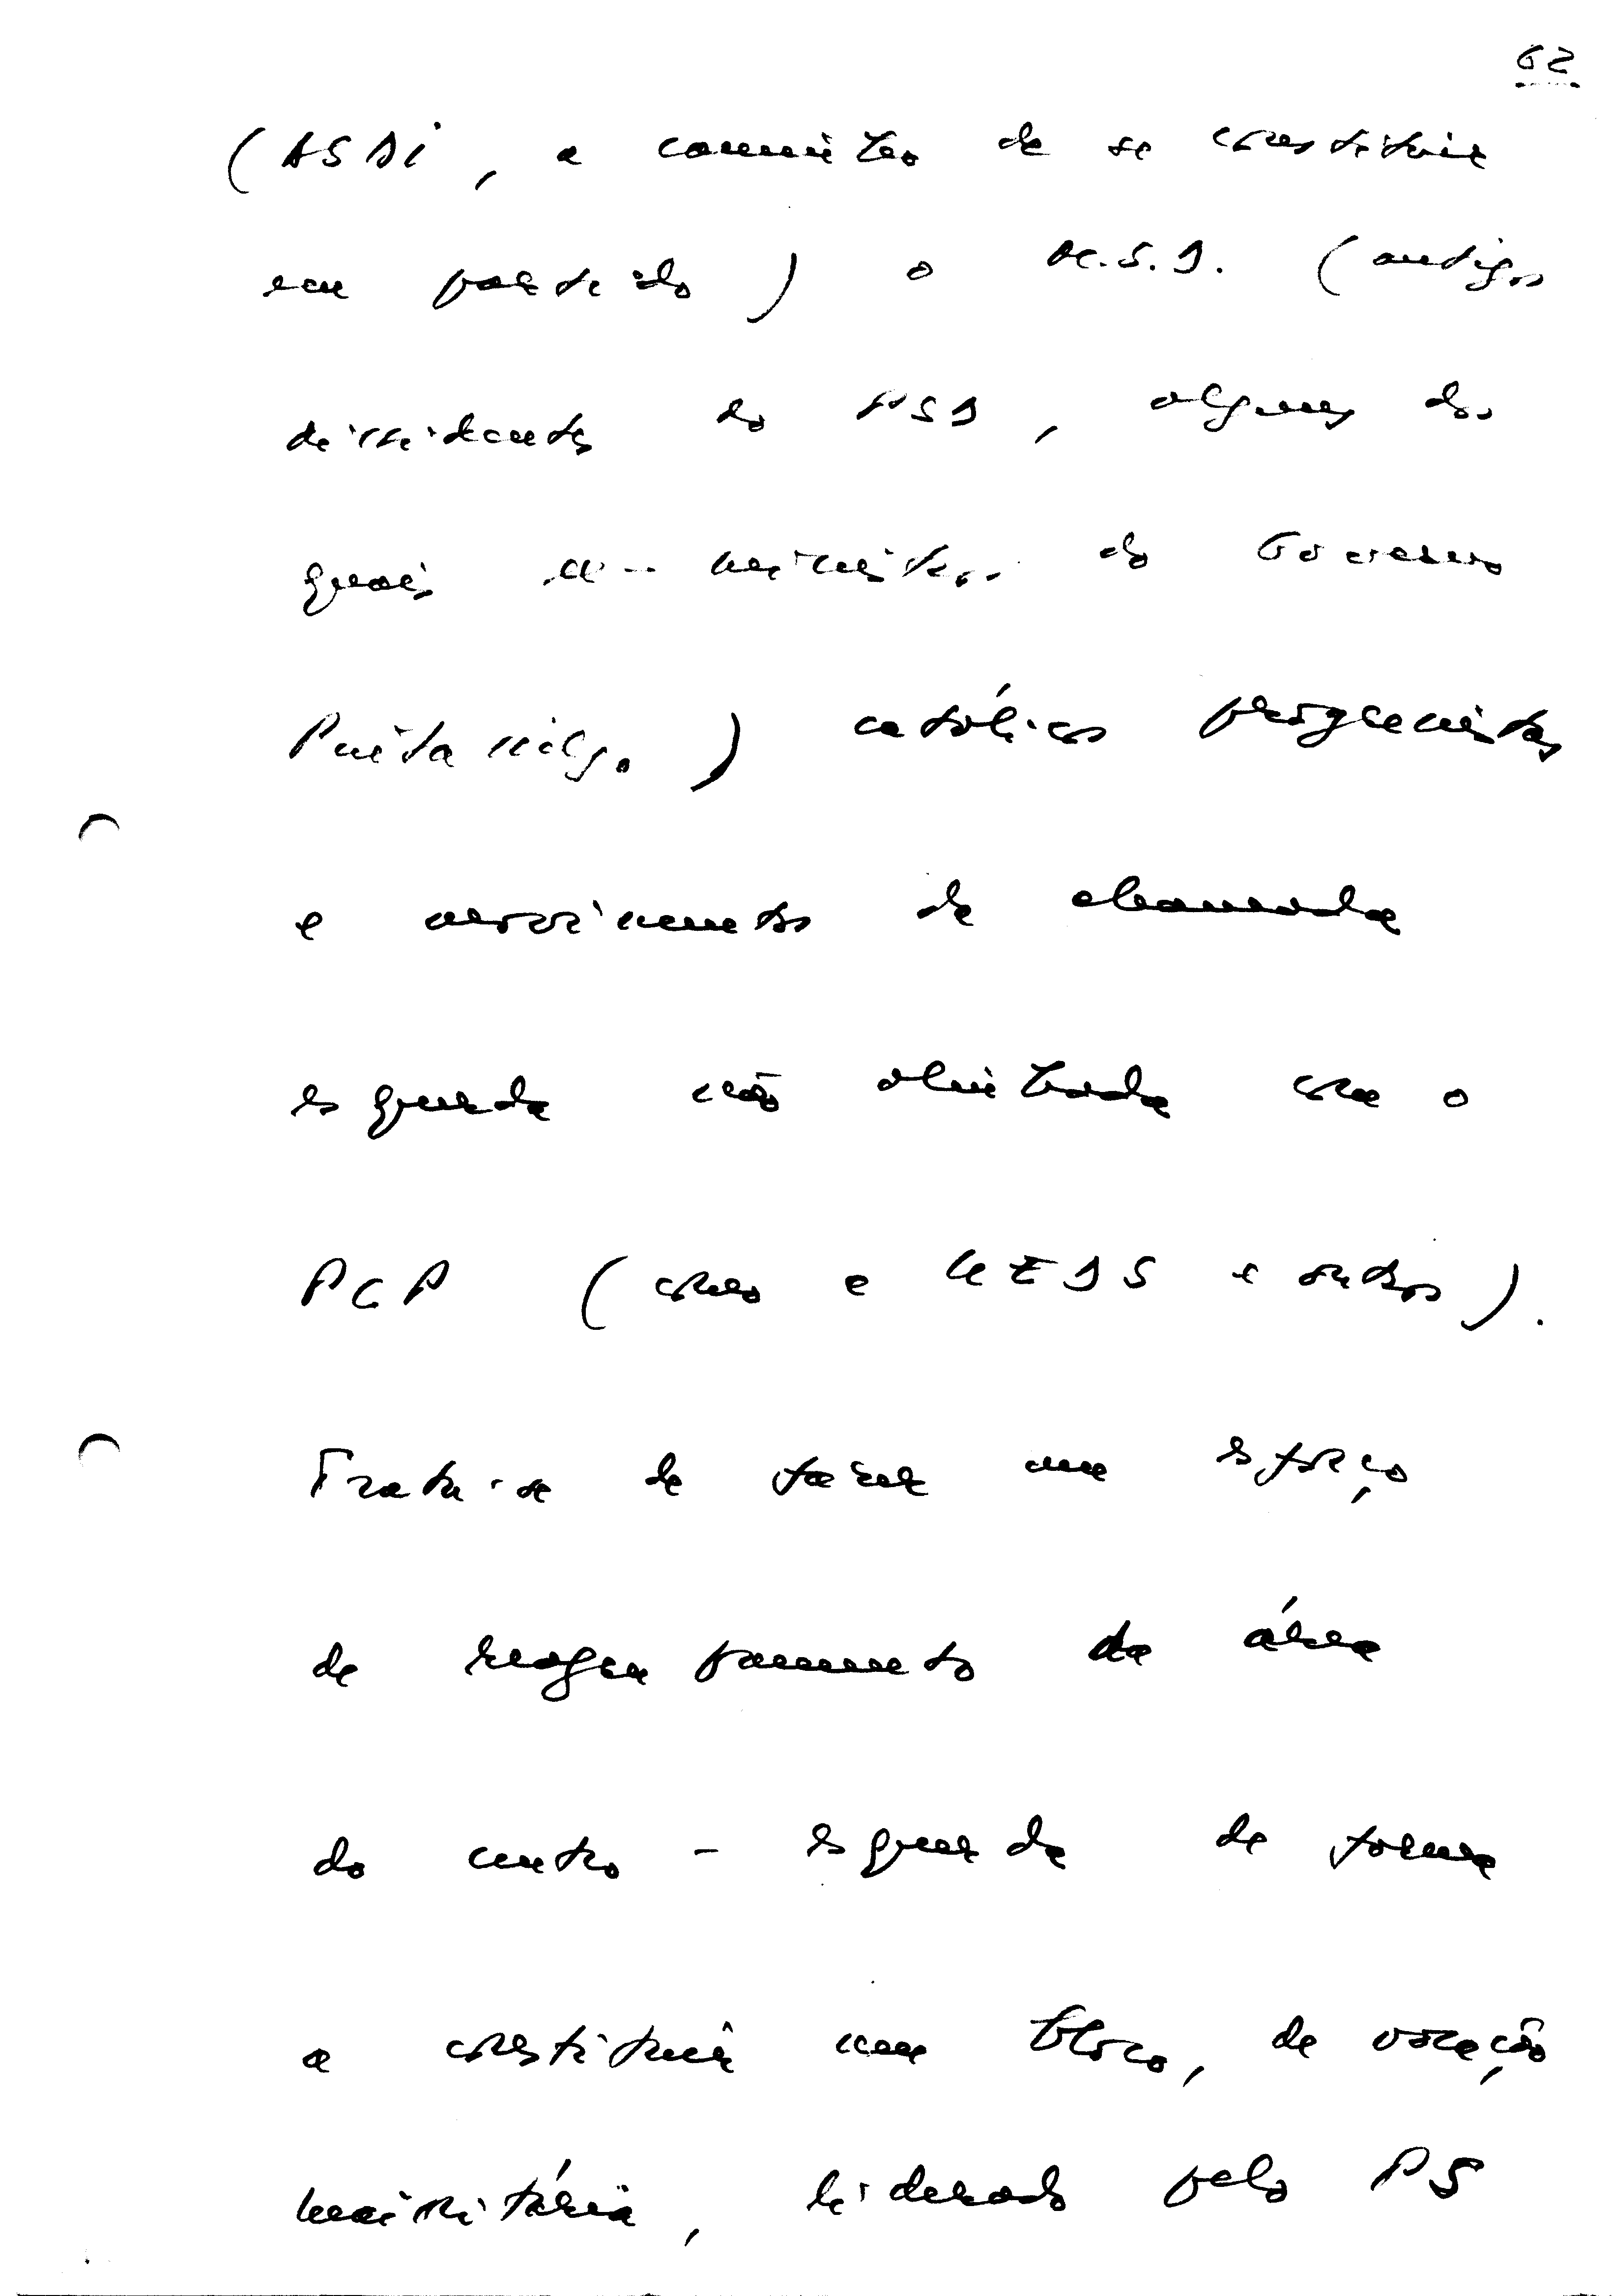 62
(ASDI, a caminho de se constituir
em partido) o M.S.D. (antigos
dissidentes do PSD, alguns dos
quais ministros do Governo
Pintasilgo) católicos progressistas
e movimentos da chamada
esquerda não alinhada com o
PCP (como a UEDS e outros).
Trata-se de fazer um esforço
de reagrupamento da área
do centro-esquerda de forma
a constituir um bloco, de vocação
maioritária, liderado pelo PS